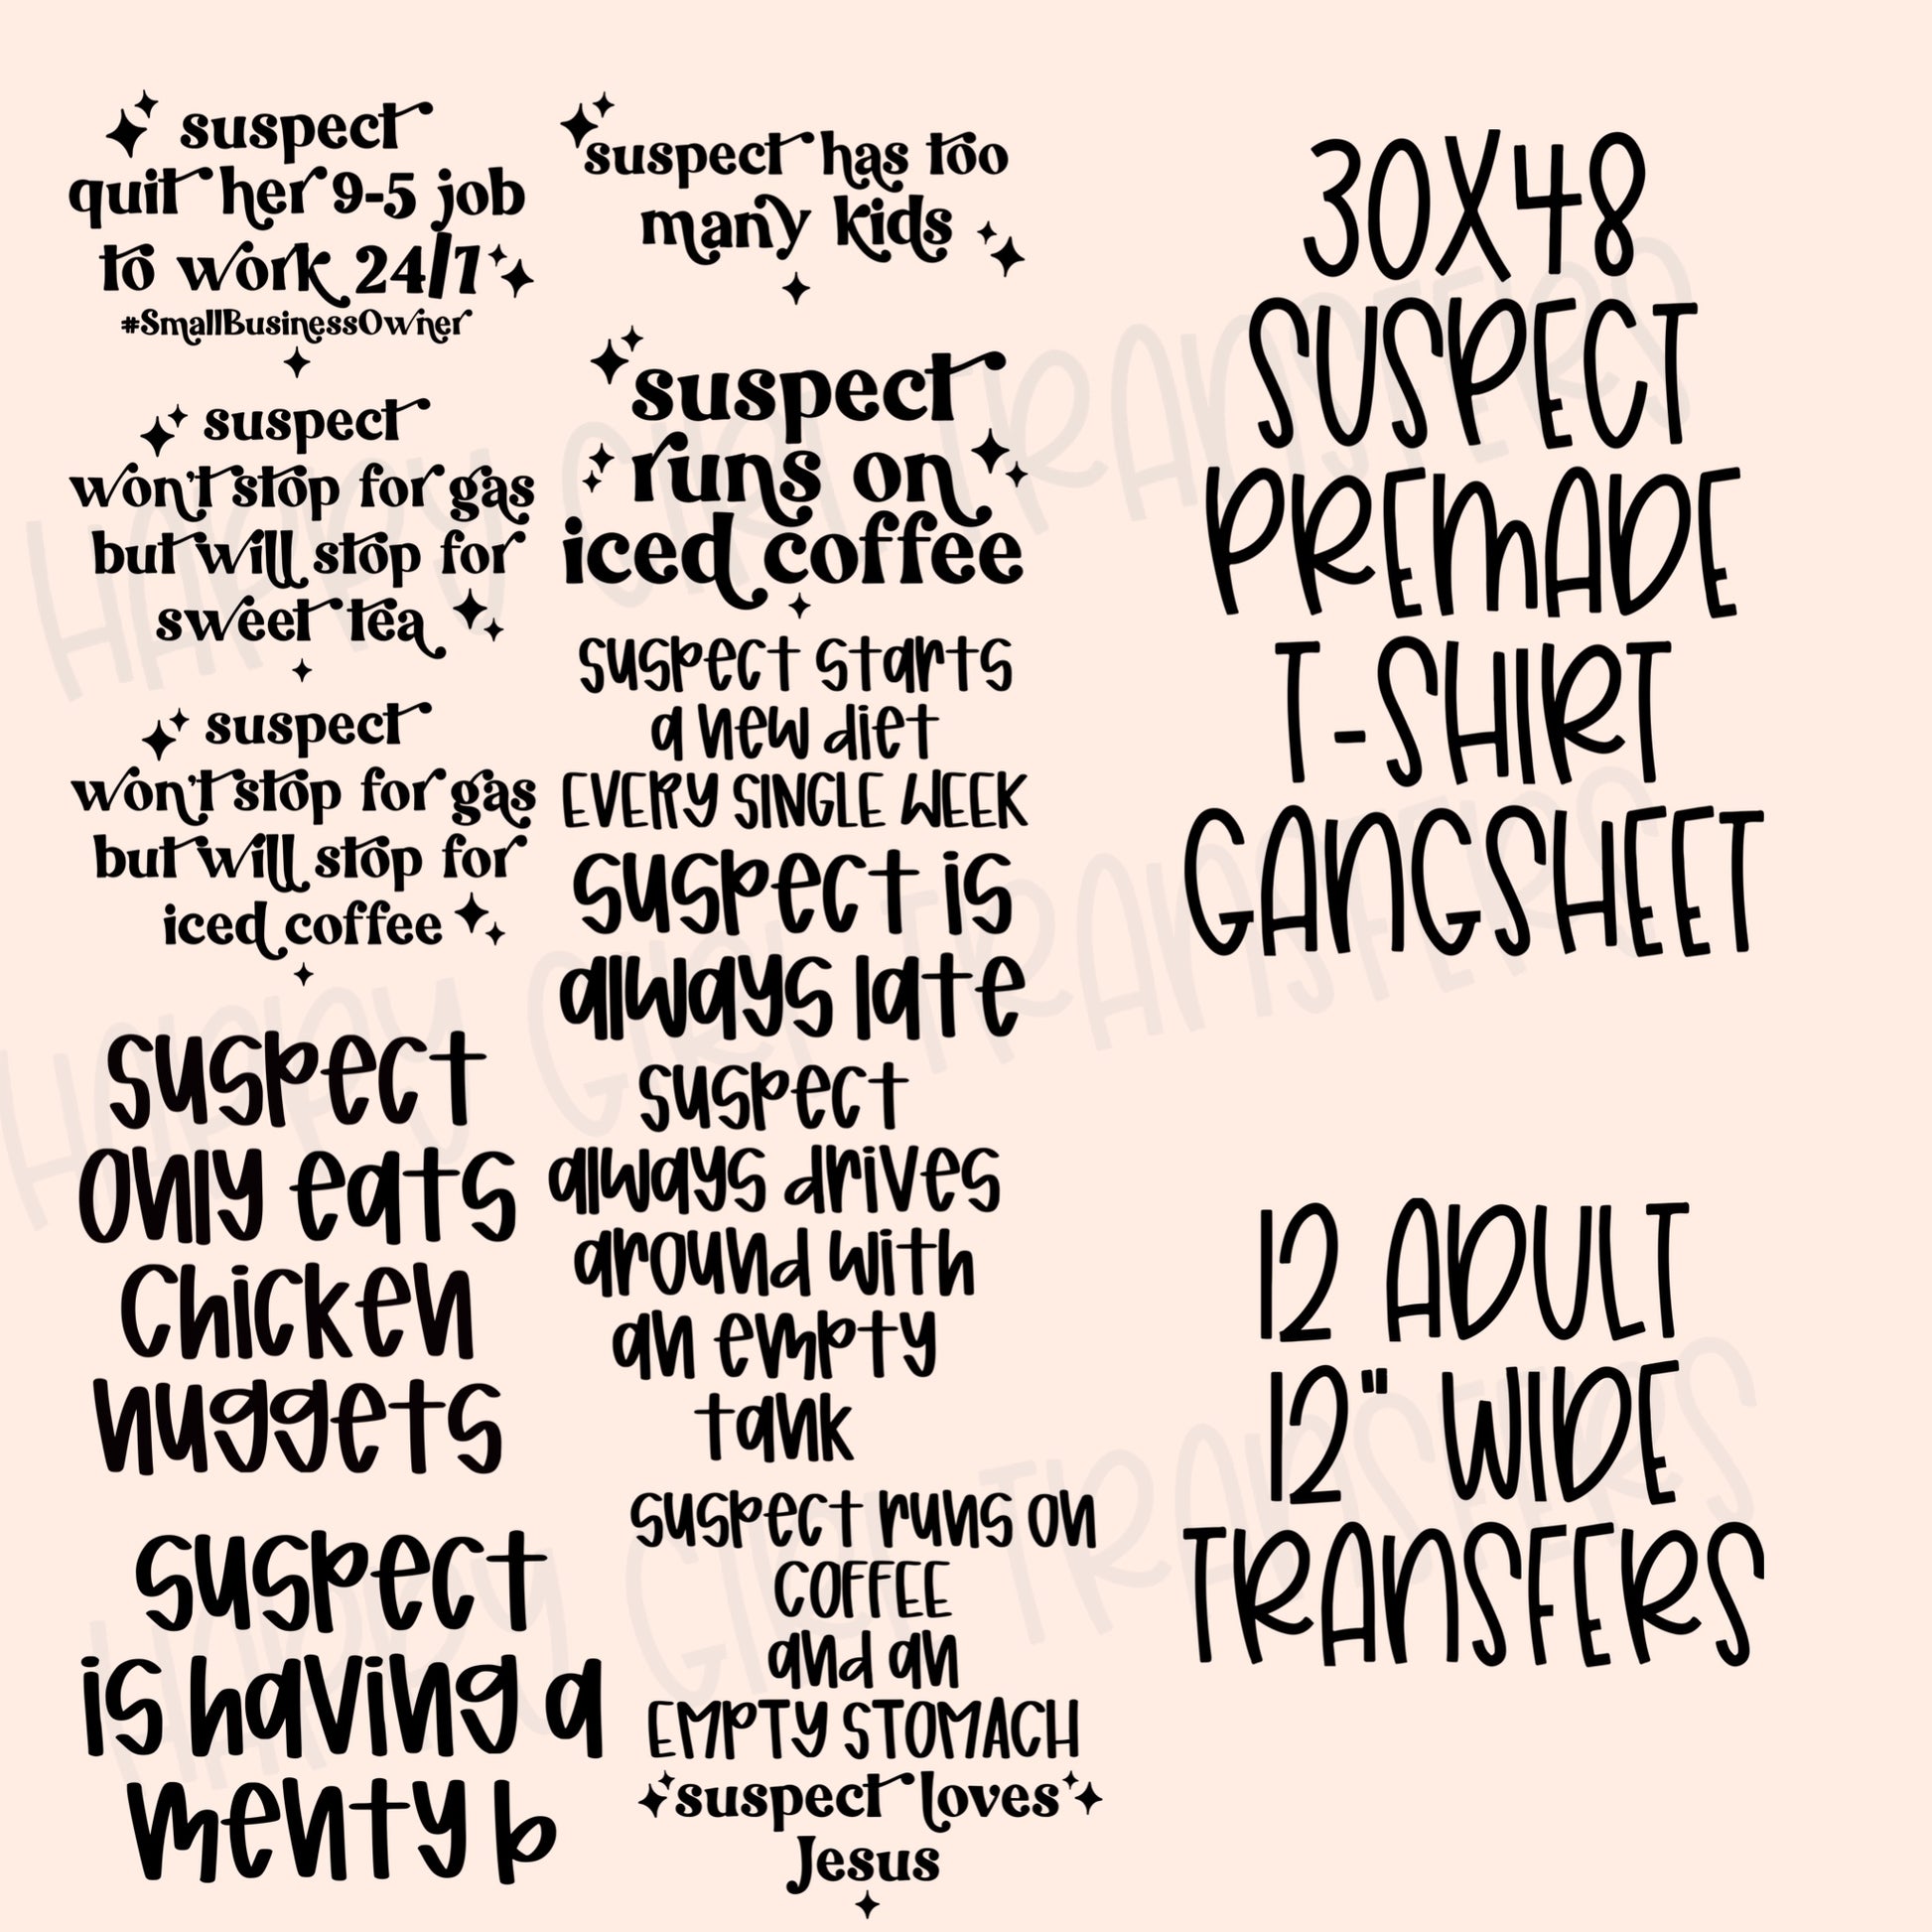 suspect
quit her 9-5 job
to work 24/7
#SmallBusinessOwner
suspect
won't stop for gas
but will stop for
sweet tea
suspect
won't stop for gas
but will stop for
iced coffee
suspect
only eats
chicken
nuggets
suspect
is having a
menty b
suspect has too
many kids
suspect
runs on
iced coffee
suspect starts
a new diet
EVERY SINGLE WEEK
suspect is
always late
suspect
always drives
around with
an empty
tank
suspect runs on
COFFEE
and an
EMPTY STOMACH
suspect loves
Jesus
30X48
SUSPECT
PREMADE
T-SHIRT
GANGSHEET
12 ADULT
12" WIDE
TRANSFERS
HAPPY GIRL TRANSFERS
HAPPY GIRL TRANSFERS
HAPPY GIRL TRANSFERS